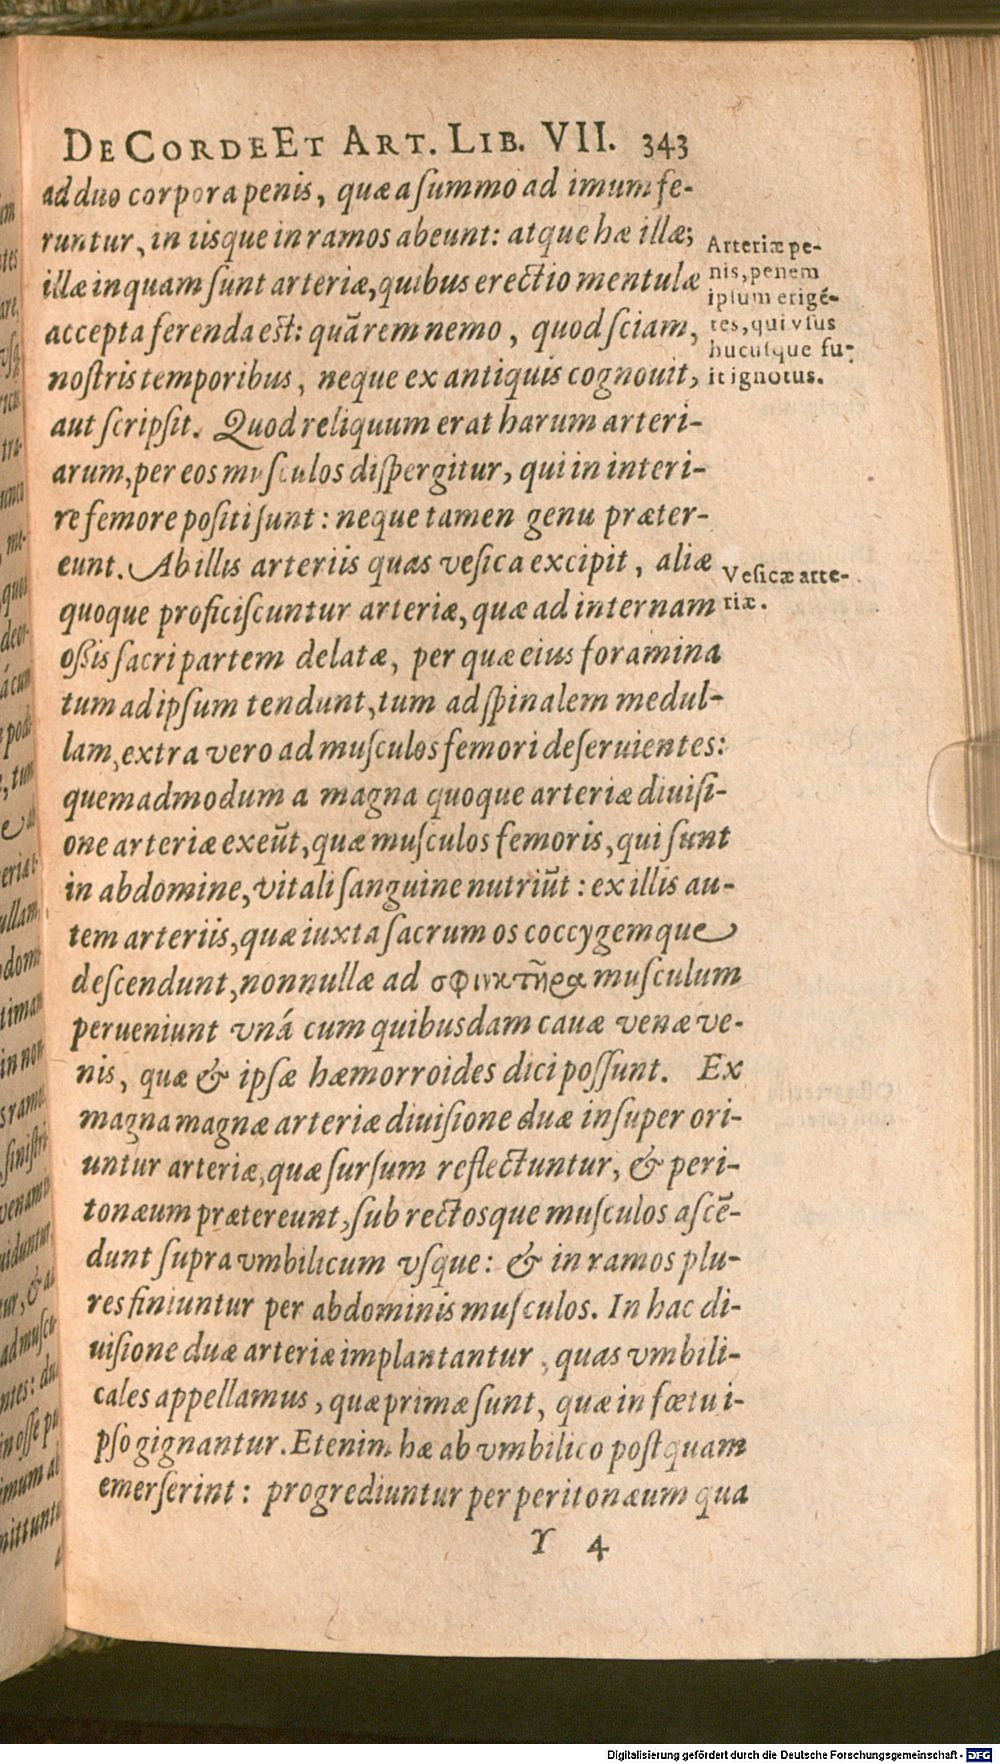 DE CORDE ET ART. LIB. VII. 343
ad duo corpora penis, quæ a summo ad imum fe-
runtur, in iisque in ramos abeunt: atque hæ illæ;
illæ inquam sunt arteriæ, quibus erectio mentulæ
accepta ferenda est: quãrem nemo, quod sciam,
nostris temporibus, neque ex antiquis cognouit,
aut scripsit. Quod reliquum erat harum arteri-
arum, per eos musculos dispergitur, qui in interi-
re femore positi sunt: neque tamen genu præter-
eunt. Ab illis arteriis quas vesica excipit, aliæ
quoque proficiscuntur arteriæ, quæ ad internam
ossis sacri partem delatæ, per quæ eius foramina
tum ad ipsum tendunt, tum ad spinalem medul-
lam, extra vero ad musculos femori deseruientes:
quemadmodum a magna quoque arteriæ diuisi-
one arteriæ exeũt, quæ musculos femoris, qui sunt
in abdomine, vitali sanguine nutriũt: ex illis au-
tem arteriis, quæ iuxta sacrum os coccygemque
descendunt, nonnullæ ad σφινκτῆρα musculum
perueniunt vná cum quibusdam cauæ venæ ve-
nis, quæ & ipsæ hæmorroides dici possunt. Ex
magna magnæ arteriæ diuisione duæ insuper ori-
untur arteriæ, quæ sursum reflectuntur, & peri-
tonæum prætereunt, sub rectosque musculos ascẽ-
dunt supra vmbilicum vsque: & in ramos plu-
res finiuntur per abdominis musculos. In hac di-
uisione duæ arteriæ implantantur, quas vmbili-
cales appellamus, quæ primæ sunt, quæ in fœtu i-
pso gignantur. Etenim hæ ab vmbilico postquam
emerserint: progrediuntur per peritonæum qua
Y 4
Arteriæ pe-
nis, penem
ipsum erigẽ-
tes, qui vsus
hucusque fu-
it ignotus.
Vesicæ arte-
riæ.
Digitalisierung gefördert durch die Deutsche Forschungsgemeinschaft - DFG